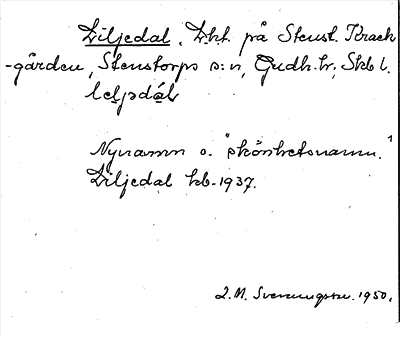 Liljedal, Lht. på Stenst. Krack
-gården, Stenstorps s:n, Gudh. hr, Skb l.
Nynamn o. "skönhetsnamn."
Liljedal kb. 1937.
2. M. Sverningstn. 1950.